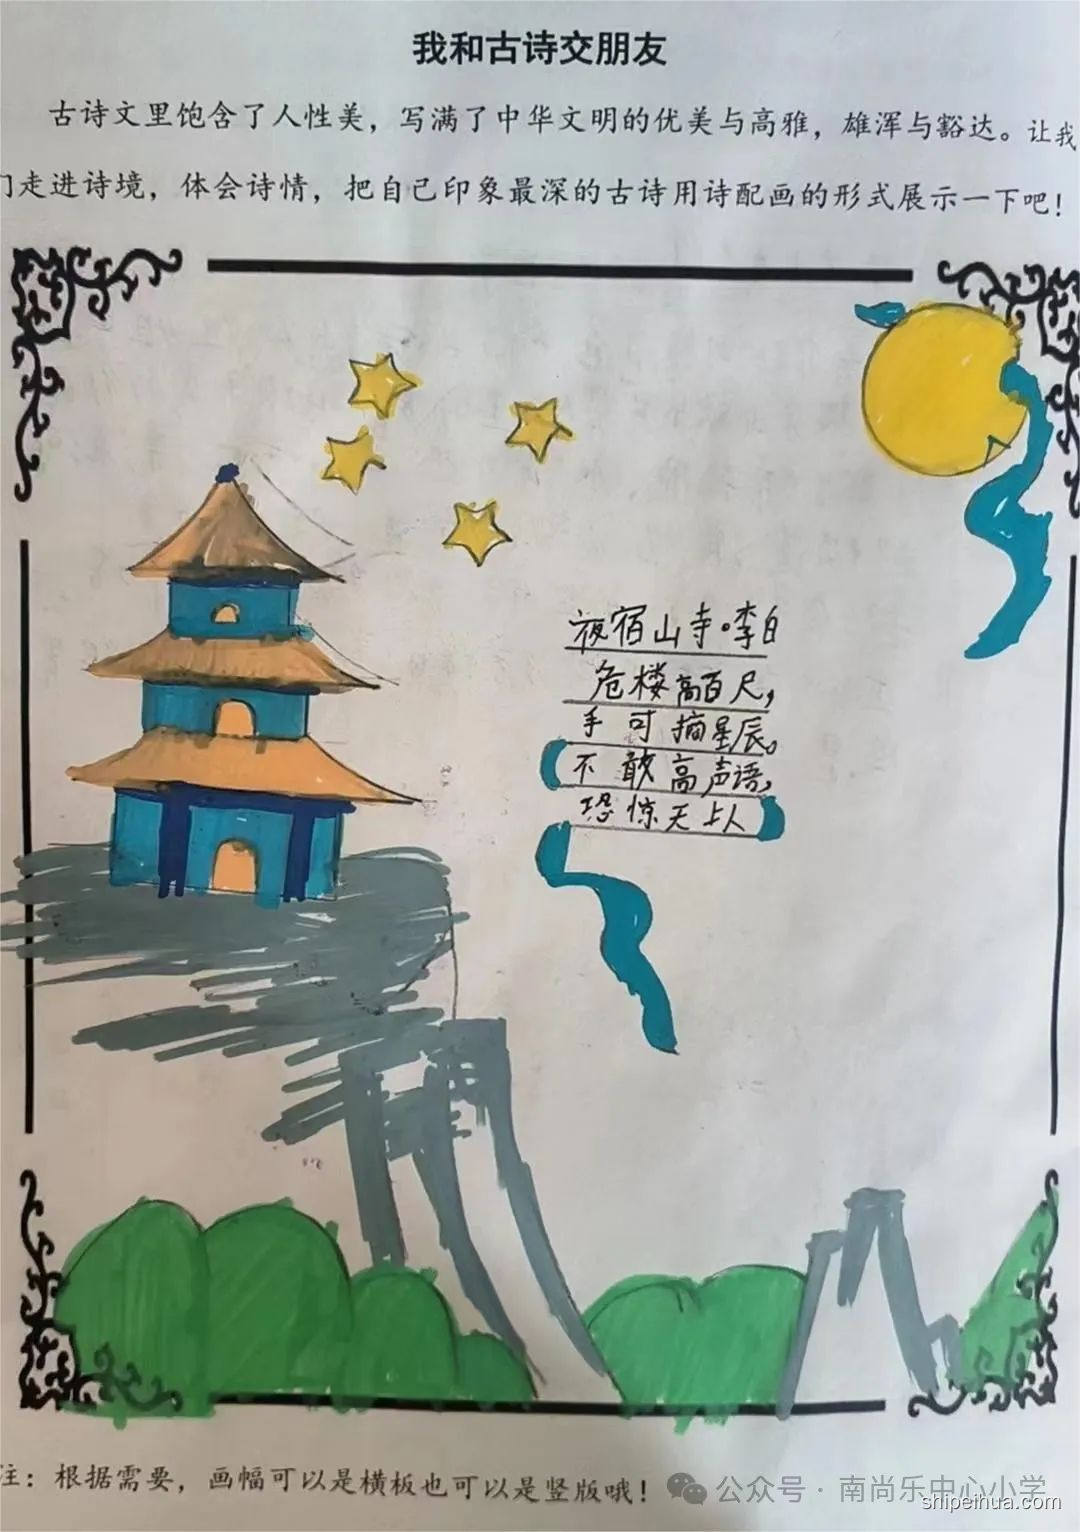 我和古诗交朋友
古诗文里饱含了人性美，写满了中华文明的优美与高雅，雄浑与豁达。让我
们走进诗境，体会诗情，把自己印象最深的古诗用诗配画的形式展示一下吧！
夜宿山寺·李白
危楼高百尺，
手可摘星辰。
不敢高声语，
恐惊天上人
注：根据需要，画幅可以是横板也可以是竖版哦！
公众号·南尚乐中心小学
shipeihua.com